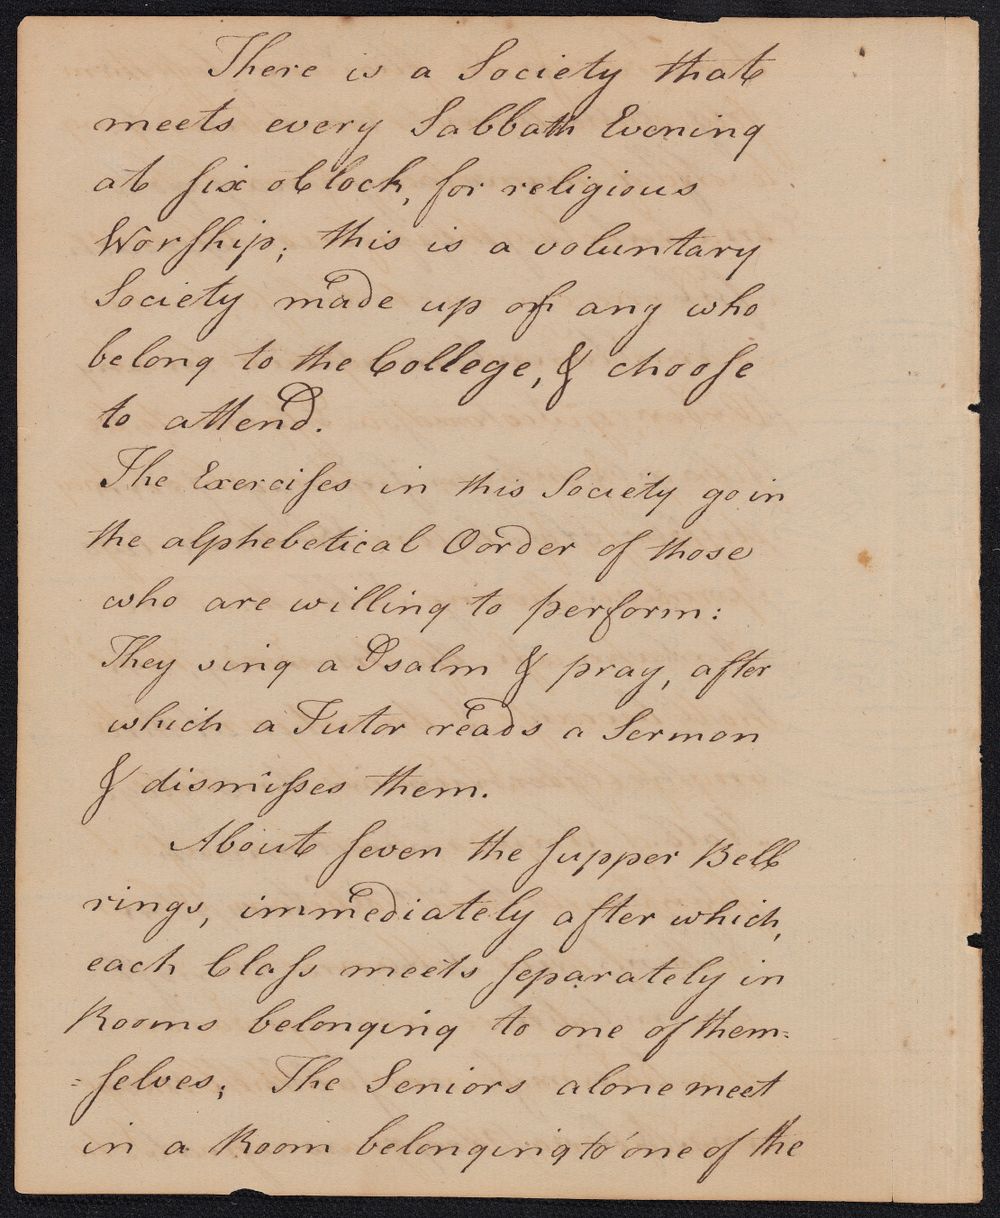 There is a Society that
meets every Sabbath Evening
at ſix oClock, for religious
Worſhip; this is a voluntary
Society made up of any who
belong to the College, & chooſe
to attend.
The Exerciſes in this Society go in
the alphebetical Oorder of those
who are willing to perform:
They sing a Psalm & pray, after
which a Tutor reads a Sermon
& dismiſses them.
About ſeven the ſupper Bell
rings, immediately after which,
each Claſs meets ſeparately in
Rooms belonging to one of them=
=ſelves; The Seniors alone meet
in a Room belonging to one of the